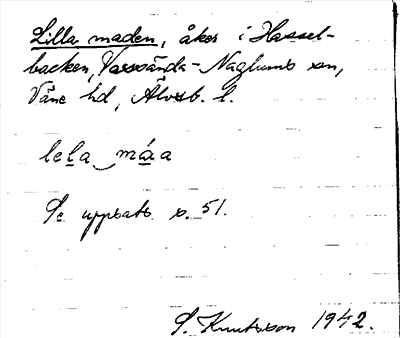 Lilla maden, åker i Hassel-
backen, Vassända-Naglums sn,
Väne hd, Älvsb. l.
lela máa
Se uppsats s. 51.
S. Knutsson 1942.